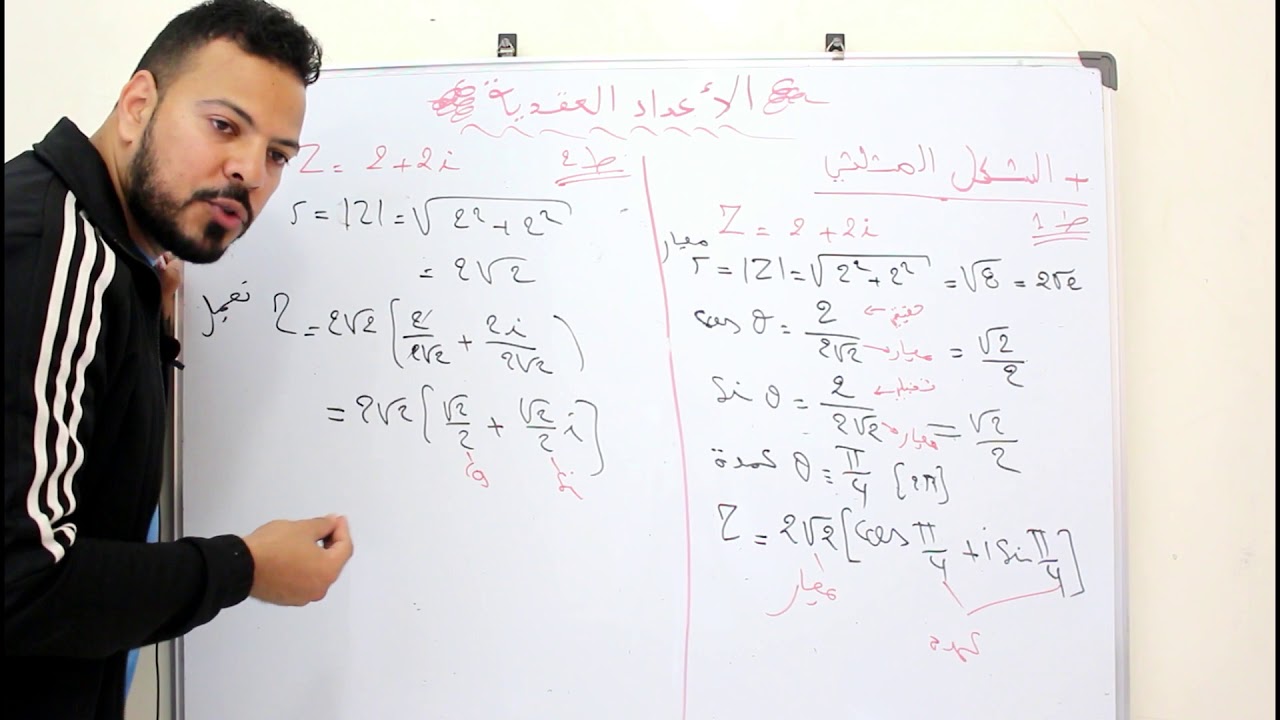 الأعداد العقدية
+ الشكل المثلثي
ط1
Z = 2 + 2i
معيار
r = |Z| = √(2² + 2²) = √8 = 2√2
cos θ = 2/2√2 = √2/2
حقيقي ←
معيار ←
sin θ = 2/2√2 = √2/2
تخيلي ←
معيار ←
عمدة θ = π/4 [2π]
Z = 2√2 [cos π/4 + i sin π/4]
معيار
ط2
Z = 2+2i
r = |Z| = √(2² + 2²)
= 2√2
نعمل Z = 2√2 (2/2√2 + 2i/2√2)
= 2√2 [√2/2 + √2/2 i]